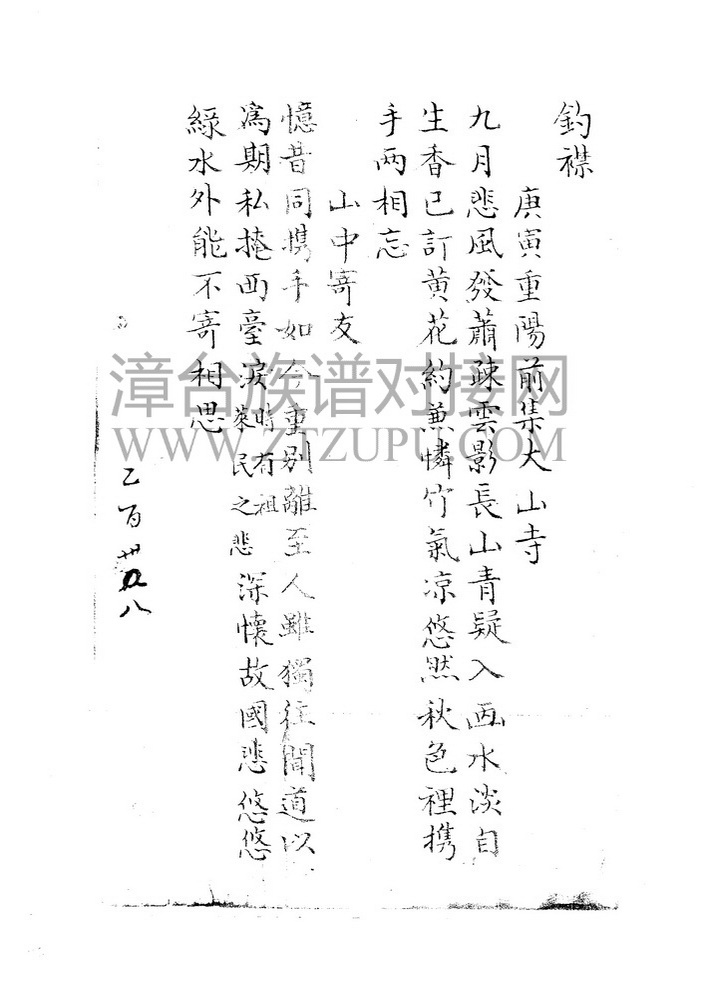 釣襟
庚寅重陽前集大山寺
九月悲風發蕭疎雲影長山青疑入画水淡自
生香已訂黄花約兼憐竹氣凉悠然秋色裡携
手两相忘
山中寄友
憶昔同携手如今重别離至人雖獨往聞道以
爲期私掩西臺淚時有祖萊民之悲深懷故國悲悠悠
綠水外能不寄相思
乙百卅八
漳台族谱对接网
WWW.ZTZUPU.COM